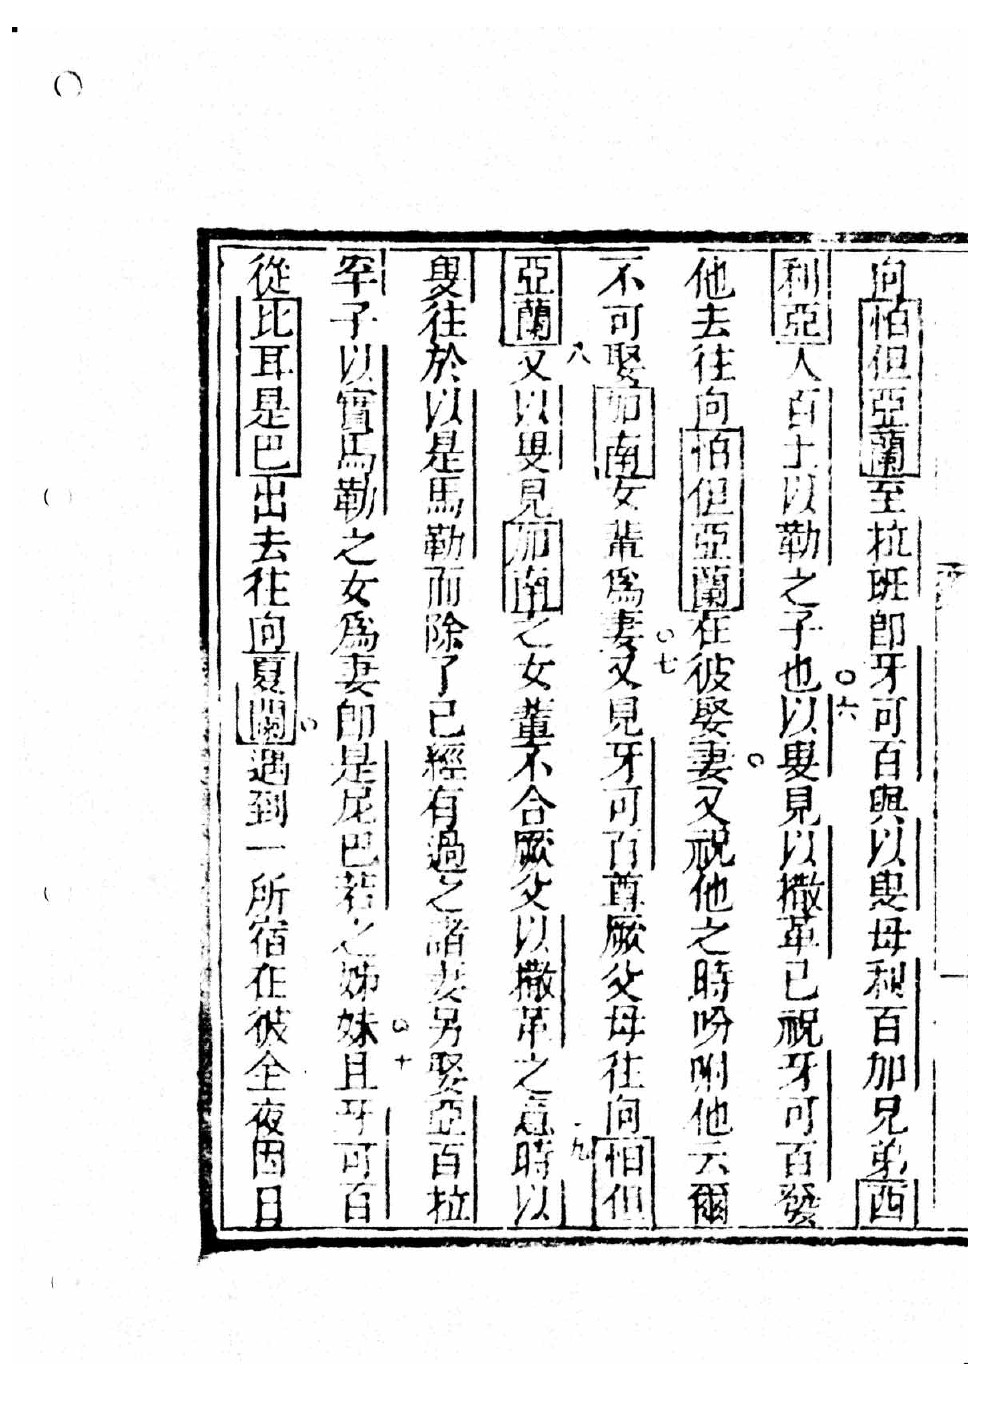 向怕但亞蘭至拉班卽牙可百與以叟母利百加兄弟西
利亞人百土以勒之子也○六以叟見以撒革已祝牙可百發
他去往向怕但亞蘭在彼娶妻○又祝他之時吩咐他云爾
不可娶加南女輩爲妻○七又見牙可百尊厥父母往向怕但
亞蘭八又以叟見加南之女輩不合厥父以撒革之意時九以
叟往於以是馬勒而除了已經有過之諸妻另娶亞百拉
罕子以實馬勒之女爲妻卽是尼巴若之姊妹○十且牙可百
從比耳是巴出去往向夏闌○遇到一所宿在彼全夜因日